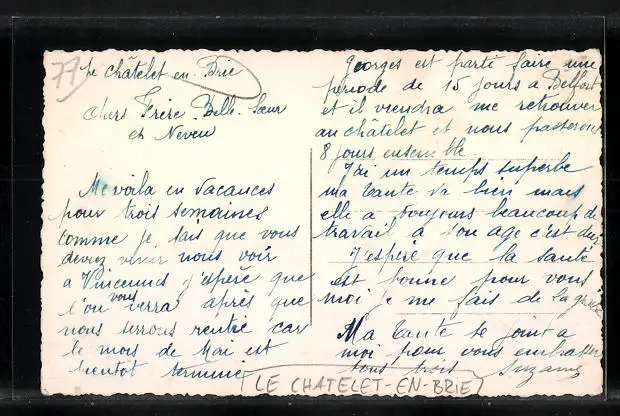 77
Le Châtelet en Brie
Chers Frère Belle Sœur
et Neveu
Me voila en vacances
pour trois semaines
comme je sais que vous
deviez venir nous voir
a Vincennes j'espère que
l'on vous verra après que
nous serrons rentré car
le mois de Mai est
bientot terminé
Georges est parti faire une
periode de 15 jours a Belfort
et il viendra me retrouver
au châtelet et nous passerons
8 jours ensemble.
J'ai un temps superbe
ma tante va bien mais
elle a toujours beaucoup de
travail a son age c'est dur
J'espère que la santé
est bonne pour vous
moi je me fais de la graisse
Ma tante se joint a
moi pour vous embrasser
tous trois Suzanne
LE CHATELET-EN-BRIE